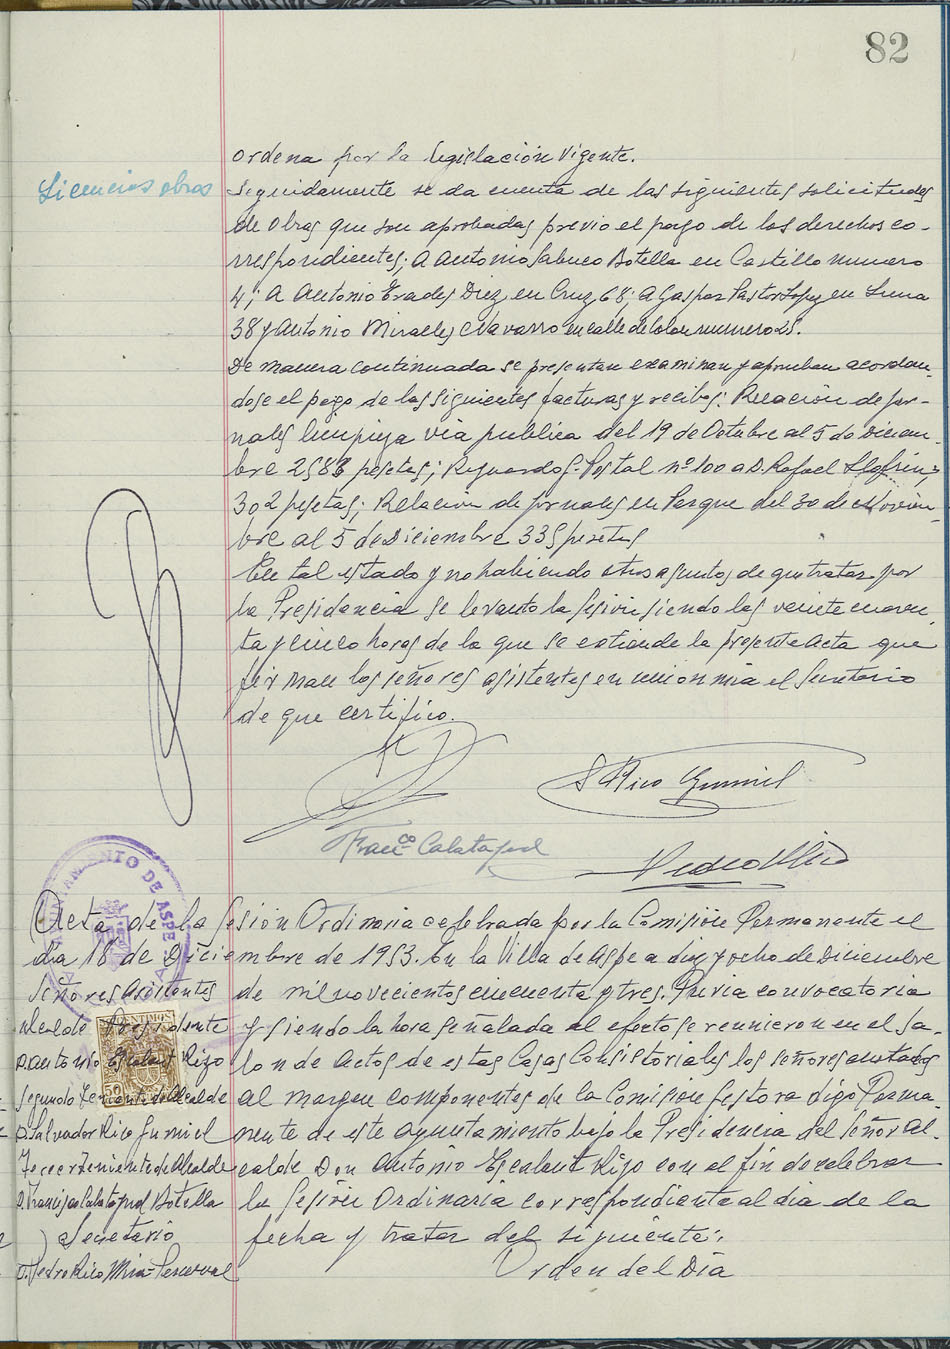 82
ordena por la legislación vigente.
Licencias obras
Seguidamente se da cuenta de las siguientes solicitudes
de obras que son aprobadas previo el pago de los derechos co-
rrespondientes; A Antonio Sabuco Botella en Castillo numero
4; A Antonio Erades Diez en Cruz 68; A Gaspar Pastor Lopez en Luna
38 y Antonio Miralles Navarro en calle de Colon numero 25.
De manera continuada se presentan examinan y aprueban acordan-
dose el pago de las siguientes facturas y recibos: Relación de jor-
nales limpieza via publica del 19 de Octubre al 5 de Diciem-
bre 2588 pesetas; Resguardo G. Postal nº 100 a D. Rafael
302 pesetas; Relación de jornales en Parque del 30 de Noviem-
bre al 5 de Diciembre 335 pesetas
En tal estado y no habiendo otros asuntos de que tratar por
la Presidencia se levanto la sesión siendo las veinte cuaren-
ta y cinco horas de la que se extiende la presente acta que
firman los señores asistentes en union mia el Secretario
de que certifico.
S Rico Gumiel
Franco Calatayud
Pedro Rico
AYUNTAMIENTO DE ASPE
Acta de la Sesión Ordinaria celebrada por la Comisión Permanente el
dia 18 de Diciembre de 1953. En la Villa de Aspe a diez y ocho de Diciembre
Señores Asistentes
Alcalde Presidente
D. Antonio Escalant Rizo
Segundo Teniente de Alcalde
D. Salvador Rico Gumiel
Tercer Teniente de Alcalde
D. Francisco Calatayud Botella
Secretario
D. Pedro Rico Mira-Perceval
50
de mil novecientos cincuenta y tres. Previa convocatoria
y siendo la hora señalada al efecto se reunieron en el Sa-
lon de Actos de estas Casas Consistoriales los señores anotados
al margen componentes de la Comisión Gestora digo Perma-
nente de este Ayuntamiento bajo la Presidencia del Señor Al-
calde Don Antonio Escalant Rizo con el fin de celebrar
la Sesión Ordinaria correspondiente al dia de la
fecha y tratar del siguiente:
Orden del Dia